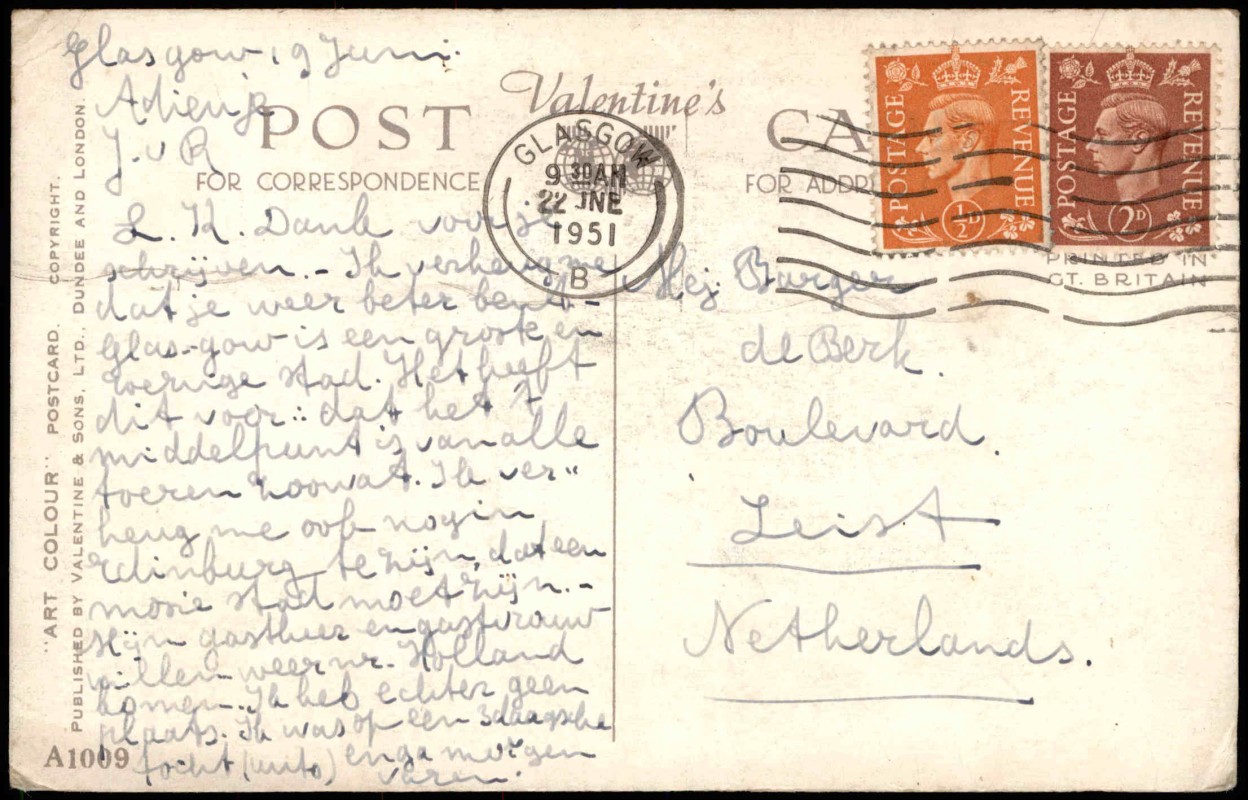 Glasgow 19 Juni.
Adieu
J. v R
L. K. Dank voor je
schrijven. - Ik verheug me
dat je weer beter bent -
Glas-gow is een groote en
stad. Het heeft
dit voor: dat het 't
middelpunt is van alle
toeren noowat. Ik ver"
heug me ook nog in
Edinburg te zijn, dat een
mooie stad moet zijn. -
Mijn gastheer en gastvrouw
willen weer nr. Holland
komen. Ik heb echter geen
plaats. Ik was op een 3daagsche
tocht (auto) en ga morgen
varen.
Valentine's
POST CA
FOR CORRESPONDENCE
FOR ADDR
GLASGOW
9 30AM
22 JNE
1951
B
POSTAGE REVENUE
½D
POSTAGE REVENUE
2D
PRINTED IN
GT. BRITAIN
Mej Burger
de Berk.
Boulevard.
Zeist
Netherlands.
"ART COLOUR" POSTCARD. COPYRIGHT.
PUBLISHED BY VALENTINE & SONS, LTD., DUNDEE AND LONDON.
A1009